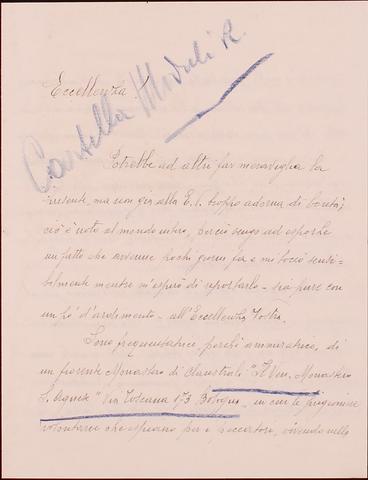 Eccellenza!
Cartella Modali R.
Potrebbe ad altri far meraviglia la
presente, ma non già alla E.V. troppo adorna di bontà;
ciò è noto al mondo intero, perciò vengo ad esporle
un fatto che avvenne pochi giorni fa e mi toccò sensi-
bilmente mentre m'esparò di riportarlo - sia pure con
un po' d'ardimento - all'Eccellenza Vostra.
Sono frequentatrice, perchè ammiratrice, di
un fiorente Monastero di Claustrali "Il Ven. Monastero
S. Agnese" Via Toscana 173 Bologna, in cui le prigioniere
volontarie che espiano per i peccatori, vivendo nella